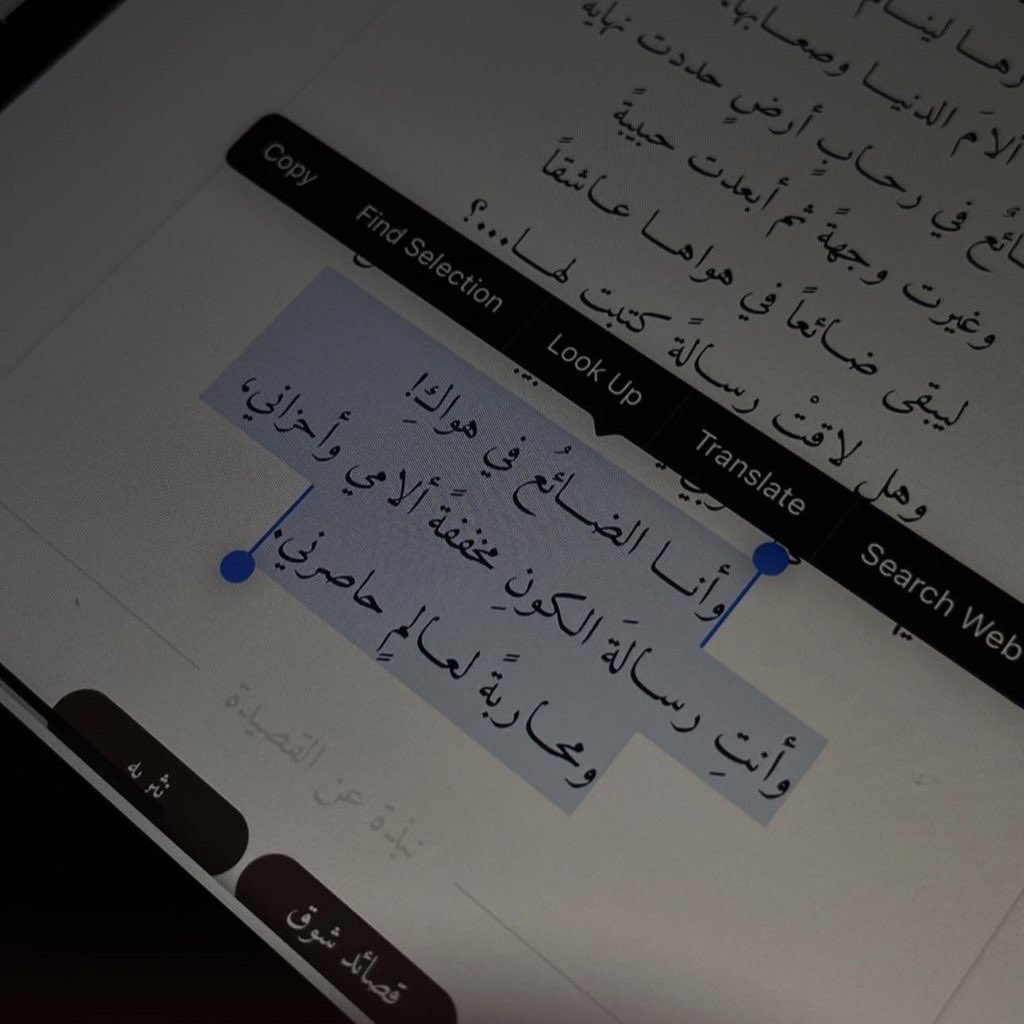 رها لينام
ألامَ الدنيا وصعابها
ائع في رحابِ أرضٍ حددت نهايه
وغيرت وجهةً ثم أبعدت حبيبةً
ليبقى ضائعاً في هواها عاشقاً
وهل لاقتْ رسالةً كتبت لها...؟
Copy
Find Selection
Look Up
Translate
Search Web
وأنا الضائُع في هواكِ!
وأنتِ رسالَة الكونِ مخففةً ألامي وأحزاني،
ومحاربةً لعالمٍ حاصرني.
نبذة عن القصيدة
قصائد شوق
نثريه